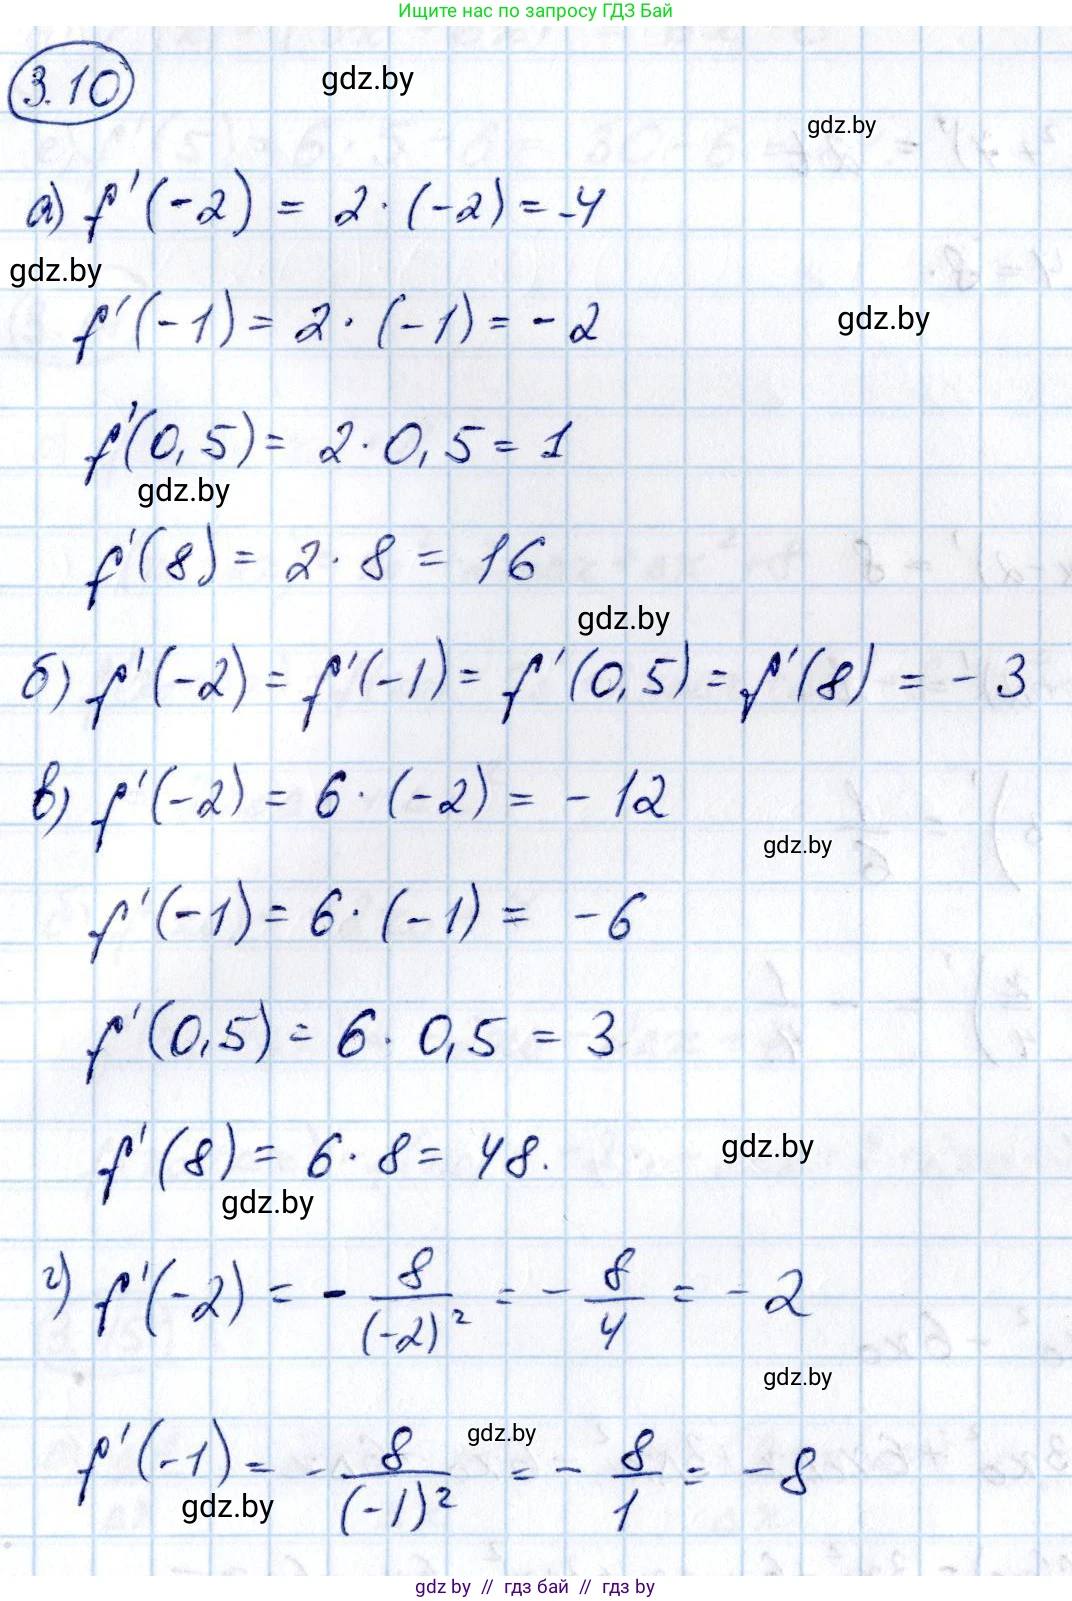 Ищите нас по запросу ГДЗ Бай
3.10
gdz.by
gdz.by
а) f'(-2) = 2 · (-2) = -4
gdz.by
f'(-1) = 2 · (-1) = -2
gdz.by
f'(0,5) = 2 · 0,5 = 1
gdz.by
f'(8) = 2 · 8 = 16
gdz.by
б) f'(-2) = f'(-1) = f'(0,5) = f'(8) = -3
в) f'(-2) = 6 · (-2) = -12
gdz.by
f'(-1) = 6 · (-1) = -6
f'(0,5) = 6 · 0,5 = 3
f'(8) = 6 · 8 = 48.
gdz.by
gdz.by
г) f'(-2) = - 8/(-2)² = - 8/4 = -2
gdz.by
gdz.by
f'(-1) = - 8/(-1)² = - 8/1 = -8
gdz.by
gdz.by // гдз бай // гдз by